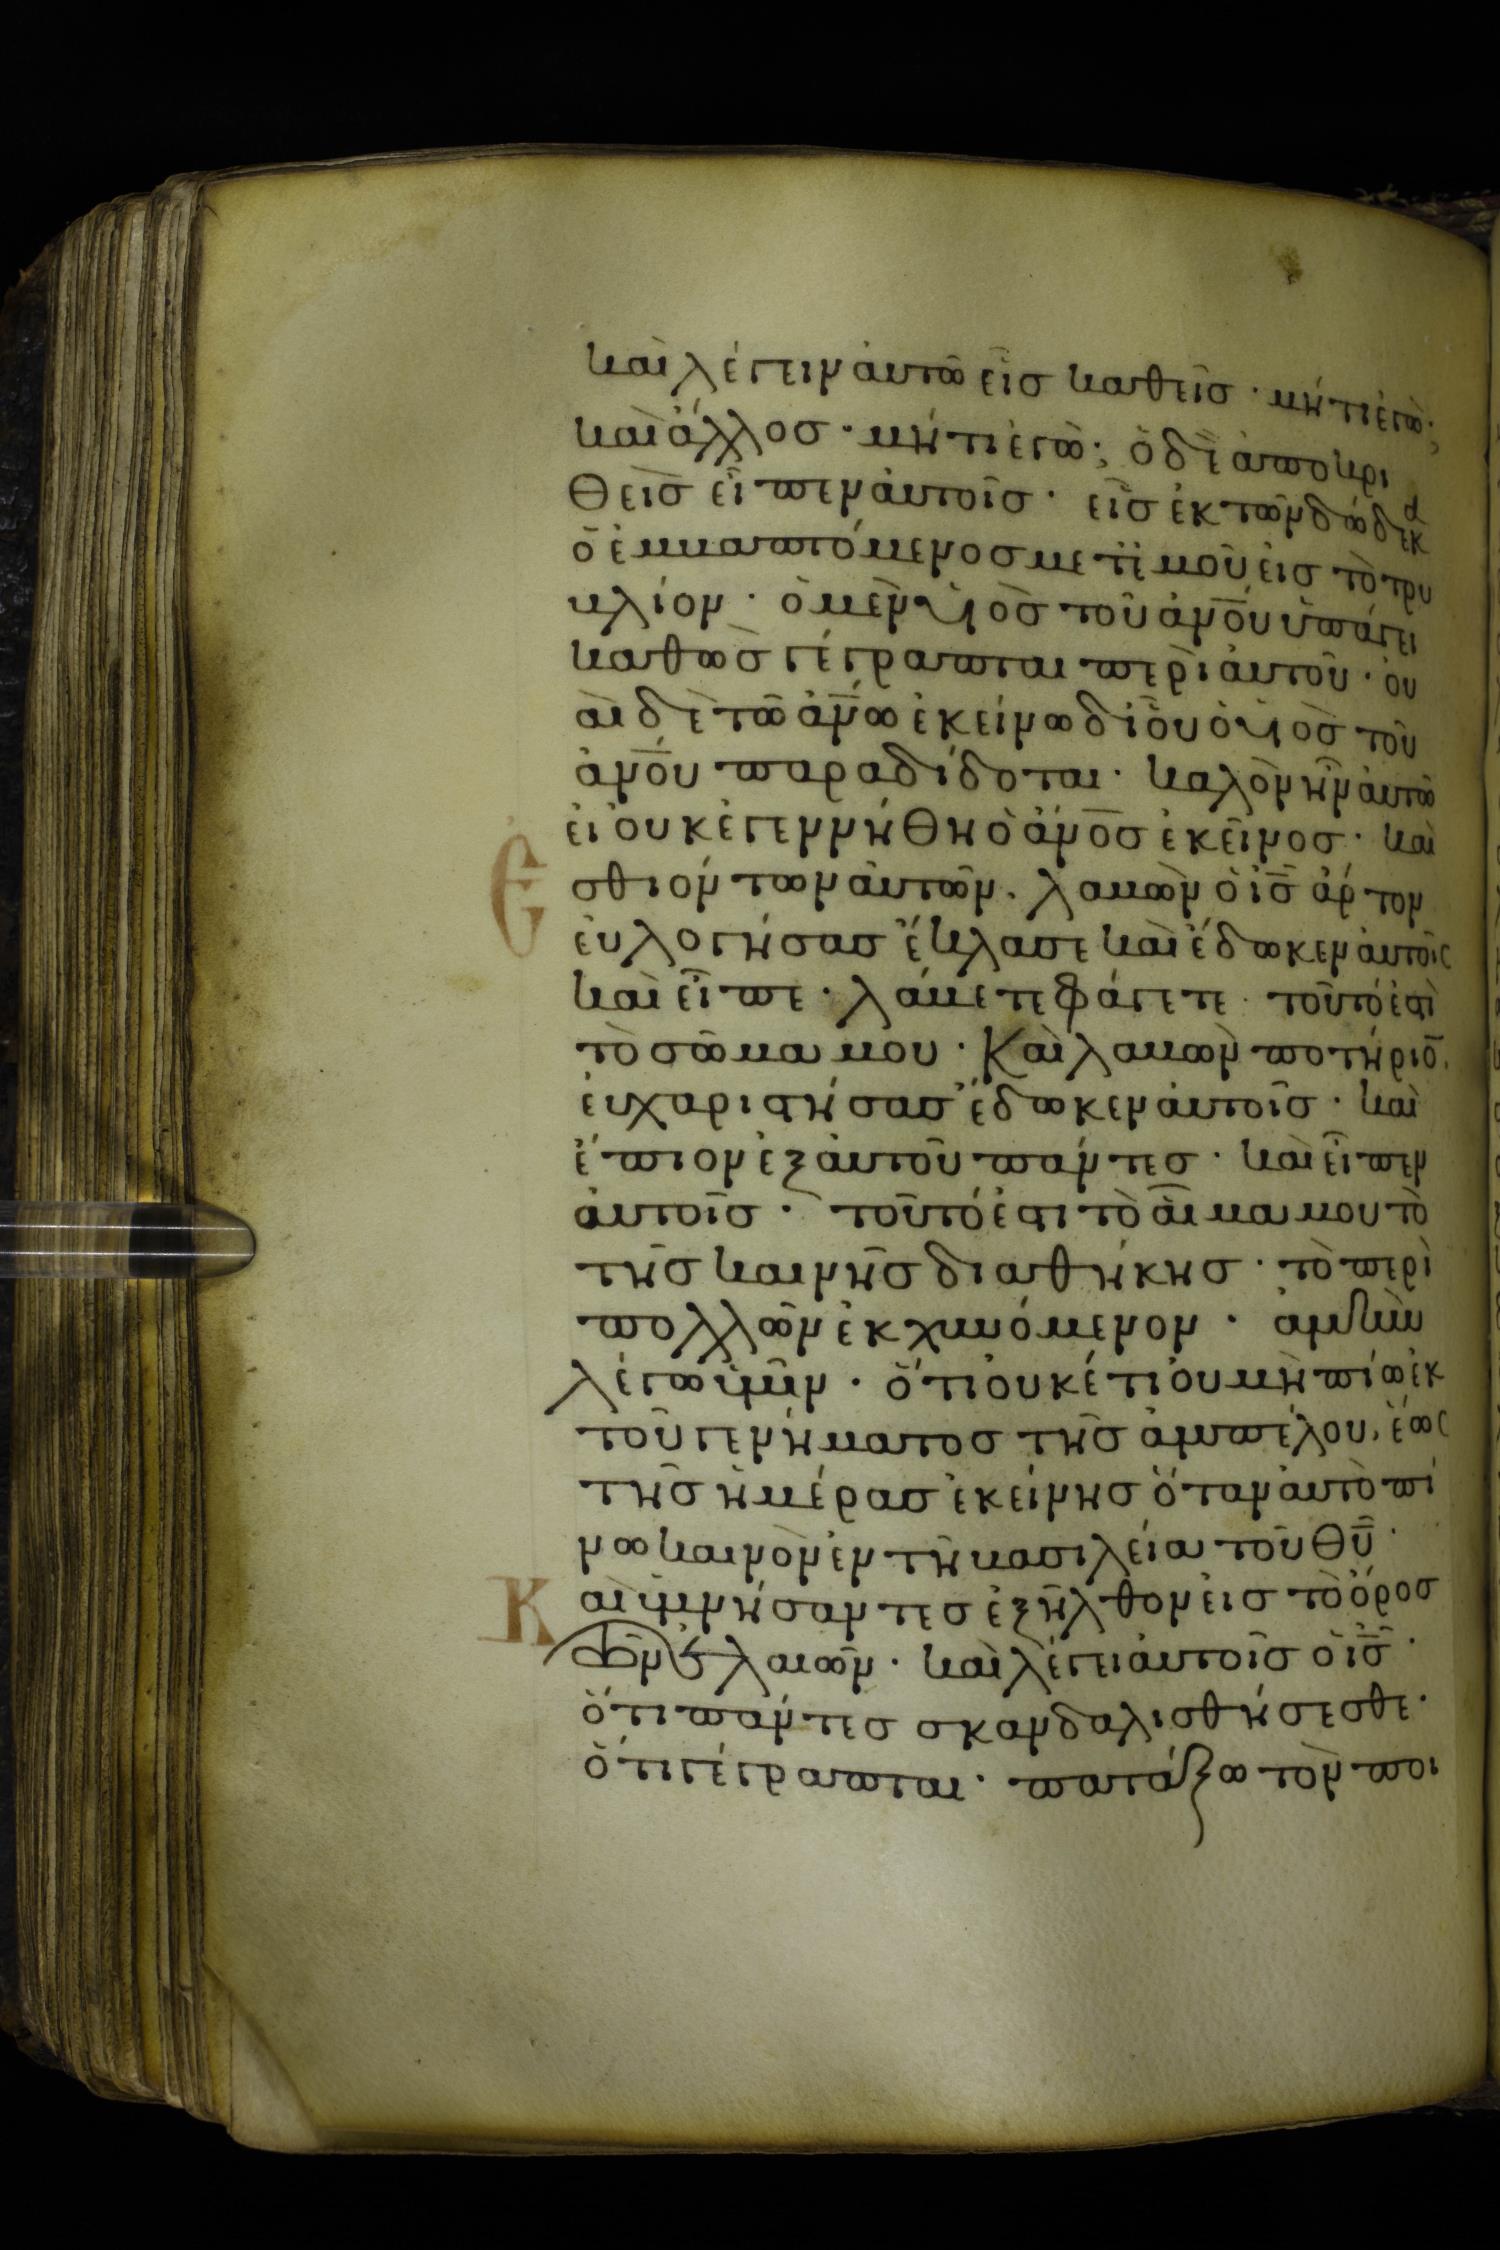 καὶ λέγειν ἀυτῶ εἶσ καθεῖσ · μήτι ἐγὼ;
καὶ ἄλλοσ · μήτι ἐγὼ; ὁ δὲ ἀποκρι
θεὶσ εἶπεν ἀυτοῖσ · εἶσ ἐκ τῶν δώδεκ
ὁ ἐμβαπτόμενοσ μετ ἐμοῦ ἐισ τὸ τρυ
βλίον · ὁ μὲν υἱὸσ τοῦ ἀν̅ο̅υ ὑπάγει
καθὼσ γέγραπται περὶ ἀυτοῦ · ὀυ
αὶ δὲ τῶ ἀν̅ω ἐκείνω δι οὗ ὁ υἱὸσ τοῦ
ἀν̅ο̅υ παραδίδοται · καλὸν ἦν ἀυτῶ
ἐι ὀυκ ἐγεννήθη ὁ ἄν̅ο̅σ ἐκεῖνοσ · καὶ
Ἐσθιόντων ἀυτῶν · λαβὼν ὁ ι̅σ̅ ἄρτον
ἐυλογήσασ ἔκλασε καὶ ἔδωκεν ἀυτοῖς
καὶ εἶπε · λάβετε φάγετε · τοῦτό ἐστὶ
τὸ σῶμα μου · Καὶ λαβὼν ποτήριο̅ ·
ἐυχαριστήσασ ἔδωκεν ἀυτοῖσ · καὶ
ἔπιον ἐξ ἀυτοῦ πάντεσ · καὶ εἶπεν
ἀυτοῖσ · τοῦτό ἐστι τὸ αἷμα μου τὸ
τῆσ καινῆσ διαθήκησ · τὸ περὶ
πολλῶν ἐκχυνόμενον · ἀμὴν
λέγω ὑμῖν · ὅτι ὀυκέτι ὀυ μὴ πίω ἐκ
τοῦ γενήματοσ τῆσ ἀμπέλου, ἕως
τῆσ ἡμέρασ ἐκείνησ ὅταν ἀυτὸ πί
νω καινὸν ἐν τῆ βασιλεία τοῦ θ̅υ̅ ·
Καὶ ὑμνήσαντεσ ἐξῆλθον ἐισ τὸ ὄροσ
τῶν ἐλαιῶν · καὶ λέγει ἀυτοῖσ ὁ ι̅σ̅ ·
ὅτι πάντεσ σκανδαλισθήσεσθε ·
ὅτι γέγραπται · πατάξω τὸν ποι